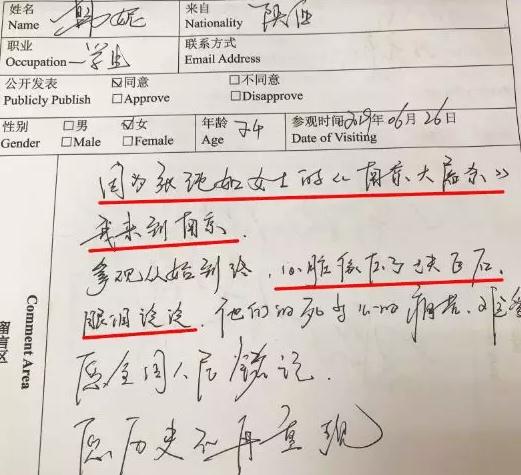 姓名
Name 妮
来自
Nationality 陕西
职业
Occupation 学生
联系方式
Email Address
公开发表 ☑同意 □不同意
Publicly Publish □Approve □Disapprove
性别 □男 ☑女
Gender □Male □Female
年龄
Age 24
参观时间 2019年06月26日
Date of Visiting
留言区
Comment Area
因为张纯如女士的《南京大屠杀》
我来到南京.
参观从始到终, 心脏像压了块巨石,
眼泪 他们的死与心的痛苦,
愿全国人民铭记.
愿历史不再重现